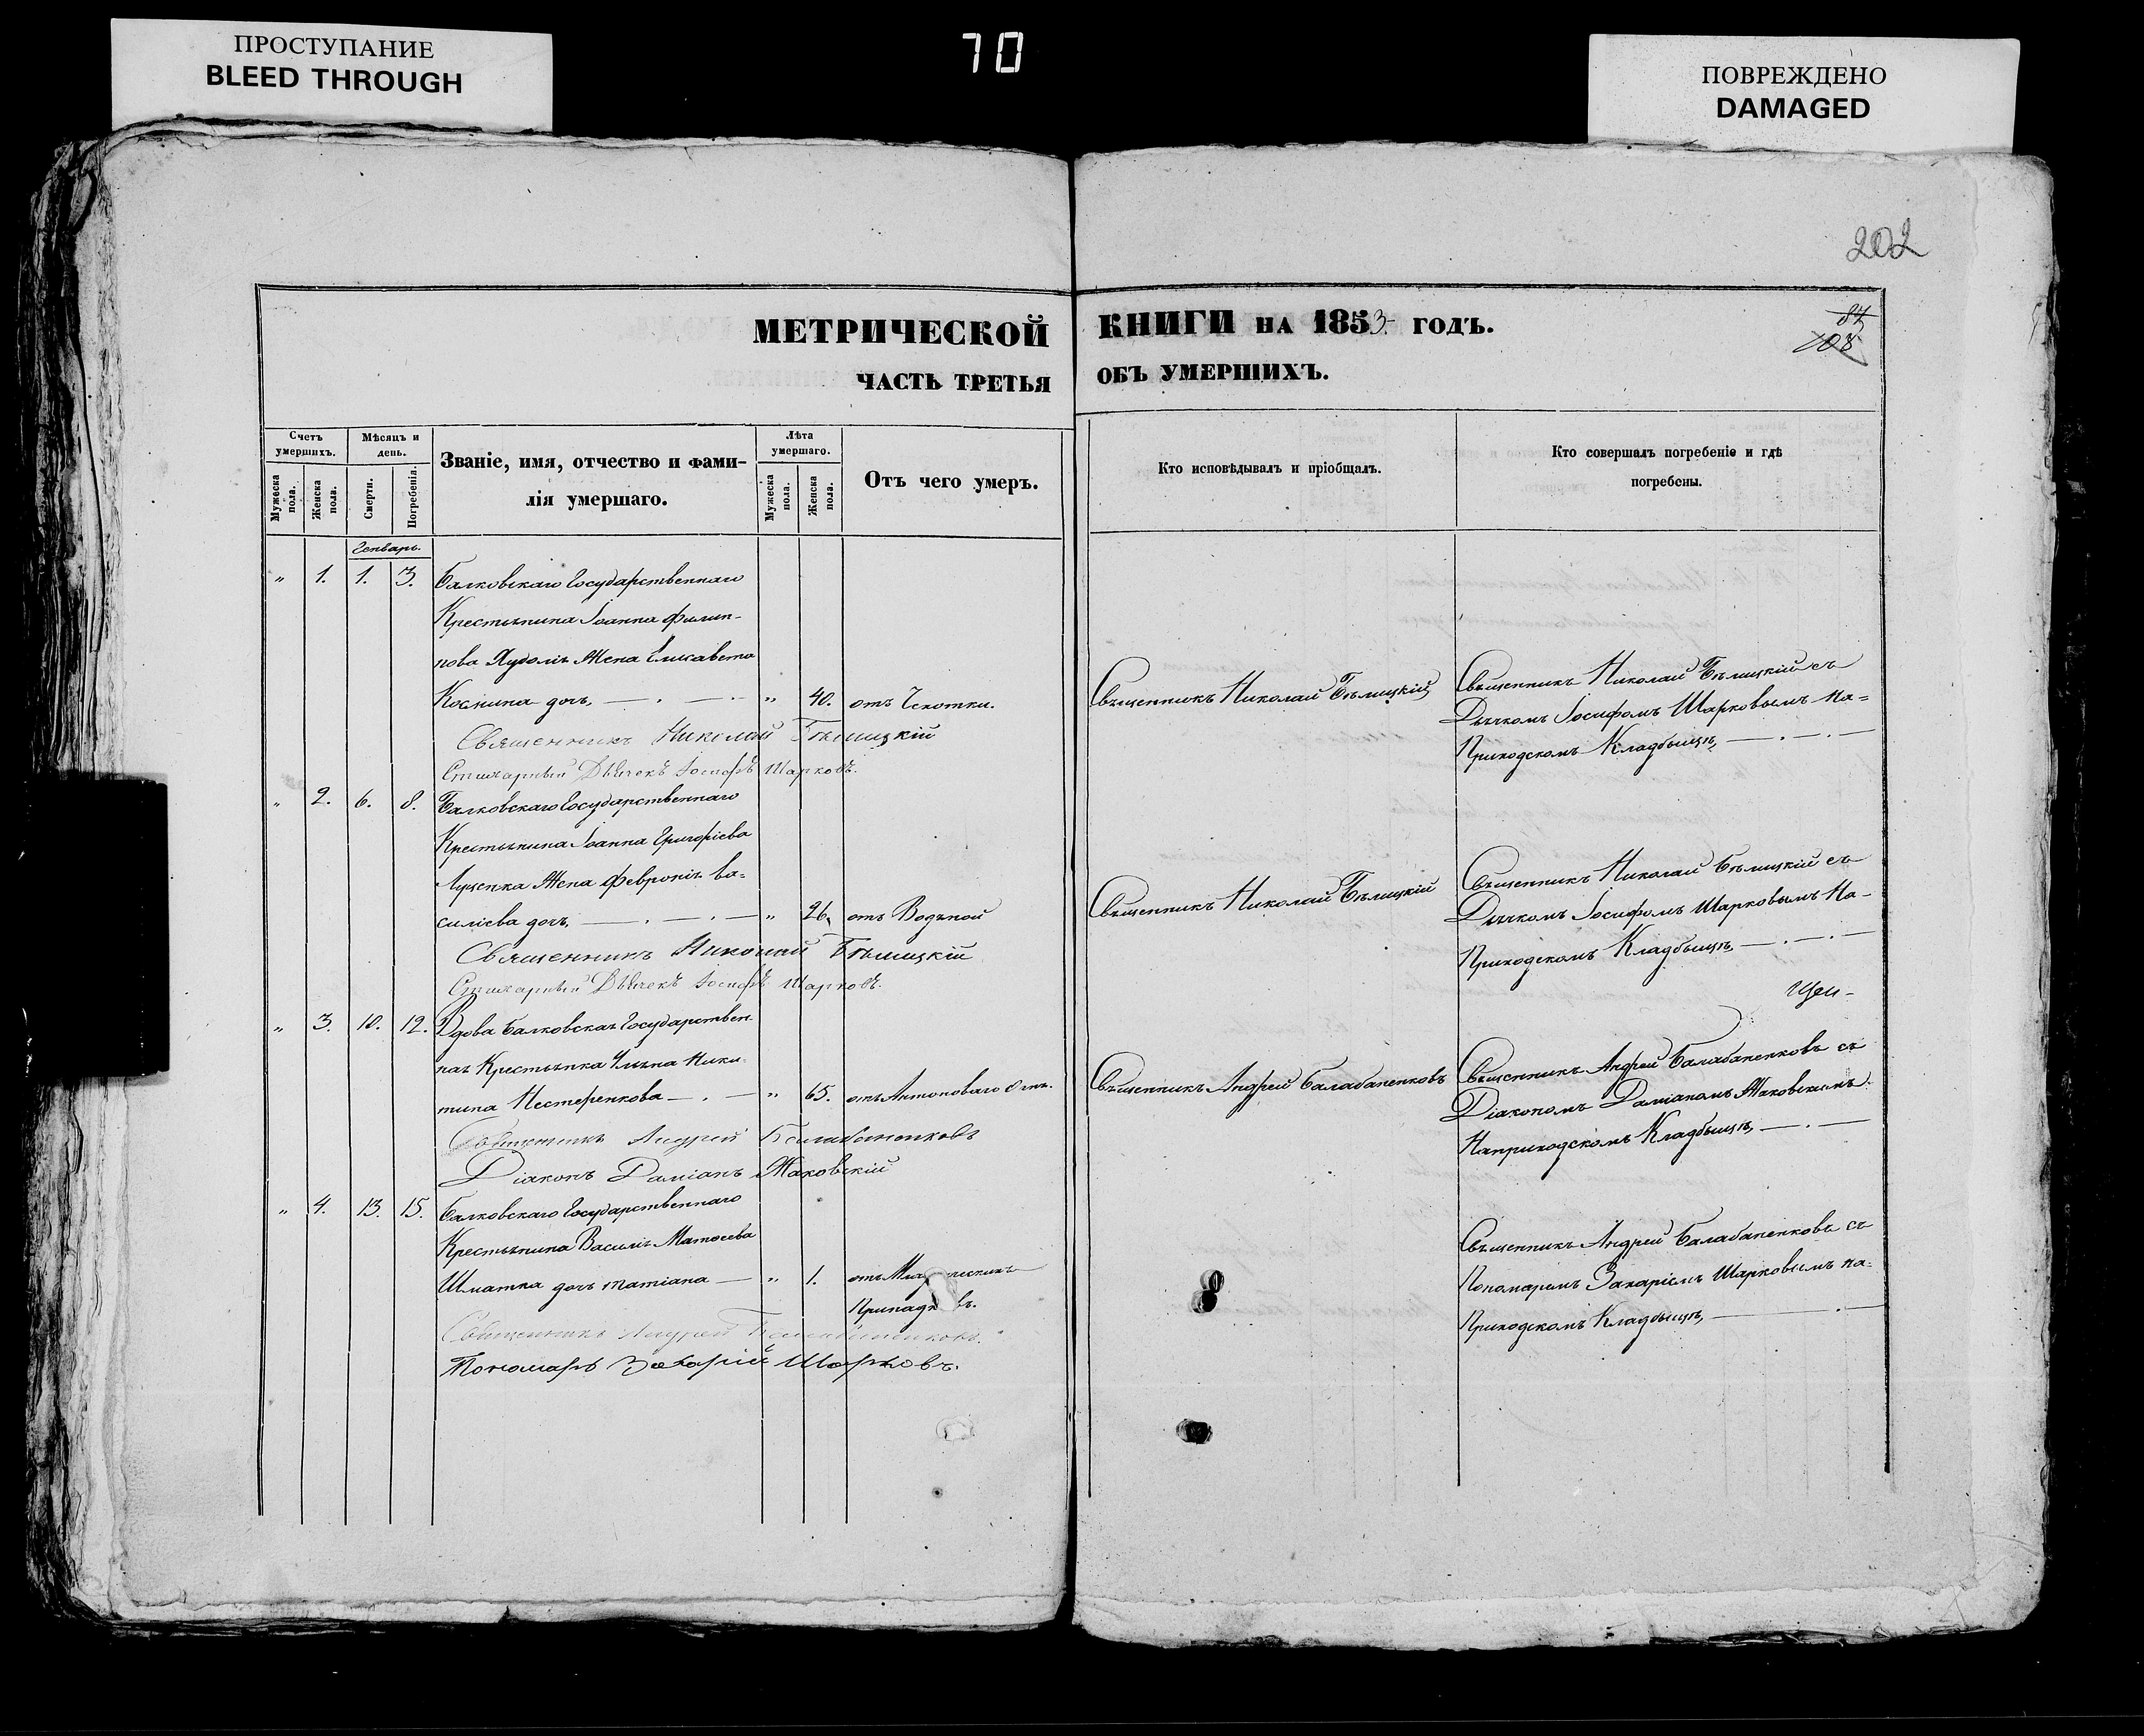 ПРОСТУПАНИЕ
BLEED THROUGH
70
ПОВРЕЖДЕНО
DAMAGED
202
МЕТРИЧЕСКОЙ КНИГИ НА 1853 ГОДЪ.
84
108
ЧАСТЬ ТРЕТЬЯ ОБЪ УМЕРШИХЪ.
Счетъ умершихъ.
Мужеска пола.
Женска пола.
Мѣсяцъ и день.
Смерти.
Погребенія.
Званіе, имя, отчество и фами-
лія умершаго.
Лѣта умершаго.
Мужеска пола.
Женска пола.
Отъ чего умеръ.
Кто исповѣдывалъ и пріобщалъ.
Кто совершалъ погребеніе и гдѣ
погребены.
Генварь.
„ 1. 1. 3. Балковскаго Государственнаго
Крестьянина Іоанна Филип-
пова Худолія Жена Елисавета
Космина дочь, — . — . „ 40. отъ Чекотки. Священникъ Николай Бѣлицкій Священникъ Николай Бѣлицкій съ
Дьячкомъ Іосифомъ Шарковымъ На=
Приходскомъ Кладбищѣ, — . — . —
Священникъ Николай Бѣлицкій
Стихарный Дьячекъ Іосифъ Шарковъ.
„ 2. 6. 8. Балковскаго Государственнаго
Крестьянина Іоанна Григоріева
Луценка Жена Февронія Ва=
силіева дочь, — . — . — „ 26. отъ Водяной Священникъ Николай Бѣлицкій Священникъ Николай Бѣлицкій съ
Дьячкомъ Іосифомъ Шарковымъ На-
Приходскомъ Кладбищѣ, — . — . —
Священникъ Николай Бѣлицкій
Стихарный Дьячекъ Іосифъ Шарковъ.
„ 3. 10. 12. Вдова Балковская Государствен-
ная Крестьянка Ульяна Ники=
тина Нестеренкова — . — „ 65. отъ Антоноваго Огня. Священникъ Андрей Балабаненковъ Священникъ Андрей Балабаненковъ съ
Діакономъ Даміаномъ Жаковскимъ
Наприходскомъ Кладбищѣ, — . —
Священникъ Андрей Балабаненковъ
Діаконъ Даміанъ Жаковскій
„ 4. 13. 15. Балковскаго Государственнаго
Крестьянина Василія Матѳеева
Шматка дочь Татіана — „ 1. отъ
Священникъ Андрей Балабаненковъ съ
Пономаремъ Захаріемъ Шарковымъ на=
Приходскомъ Кладбищѣ, — . —
Священникъ Андрей Балабаненковъ.
Пономарь Захарій Шарковъ.